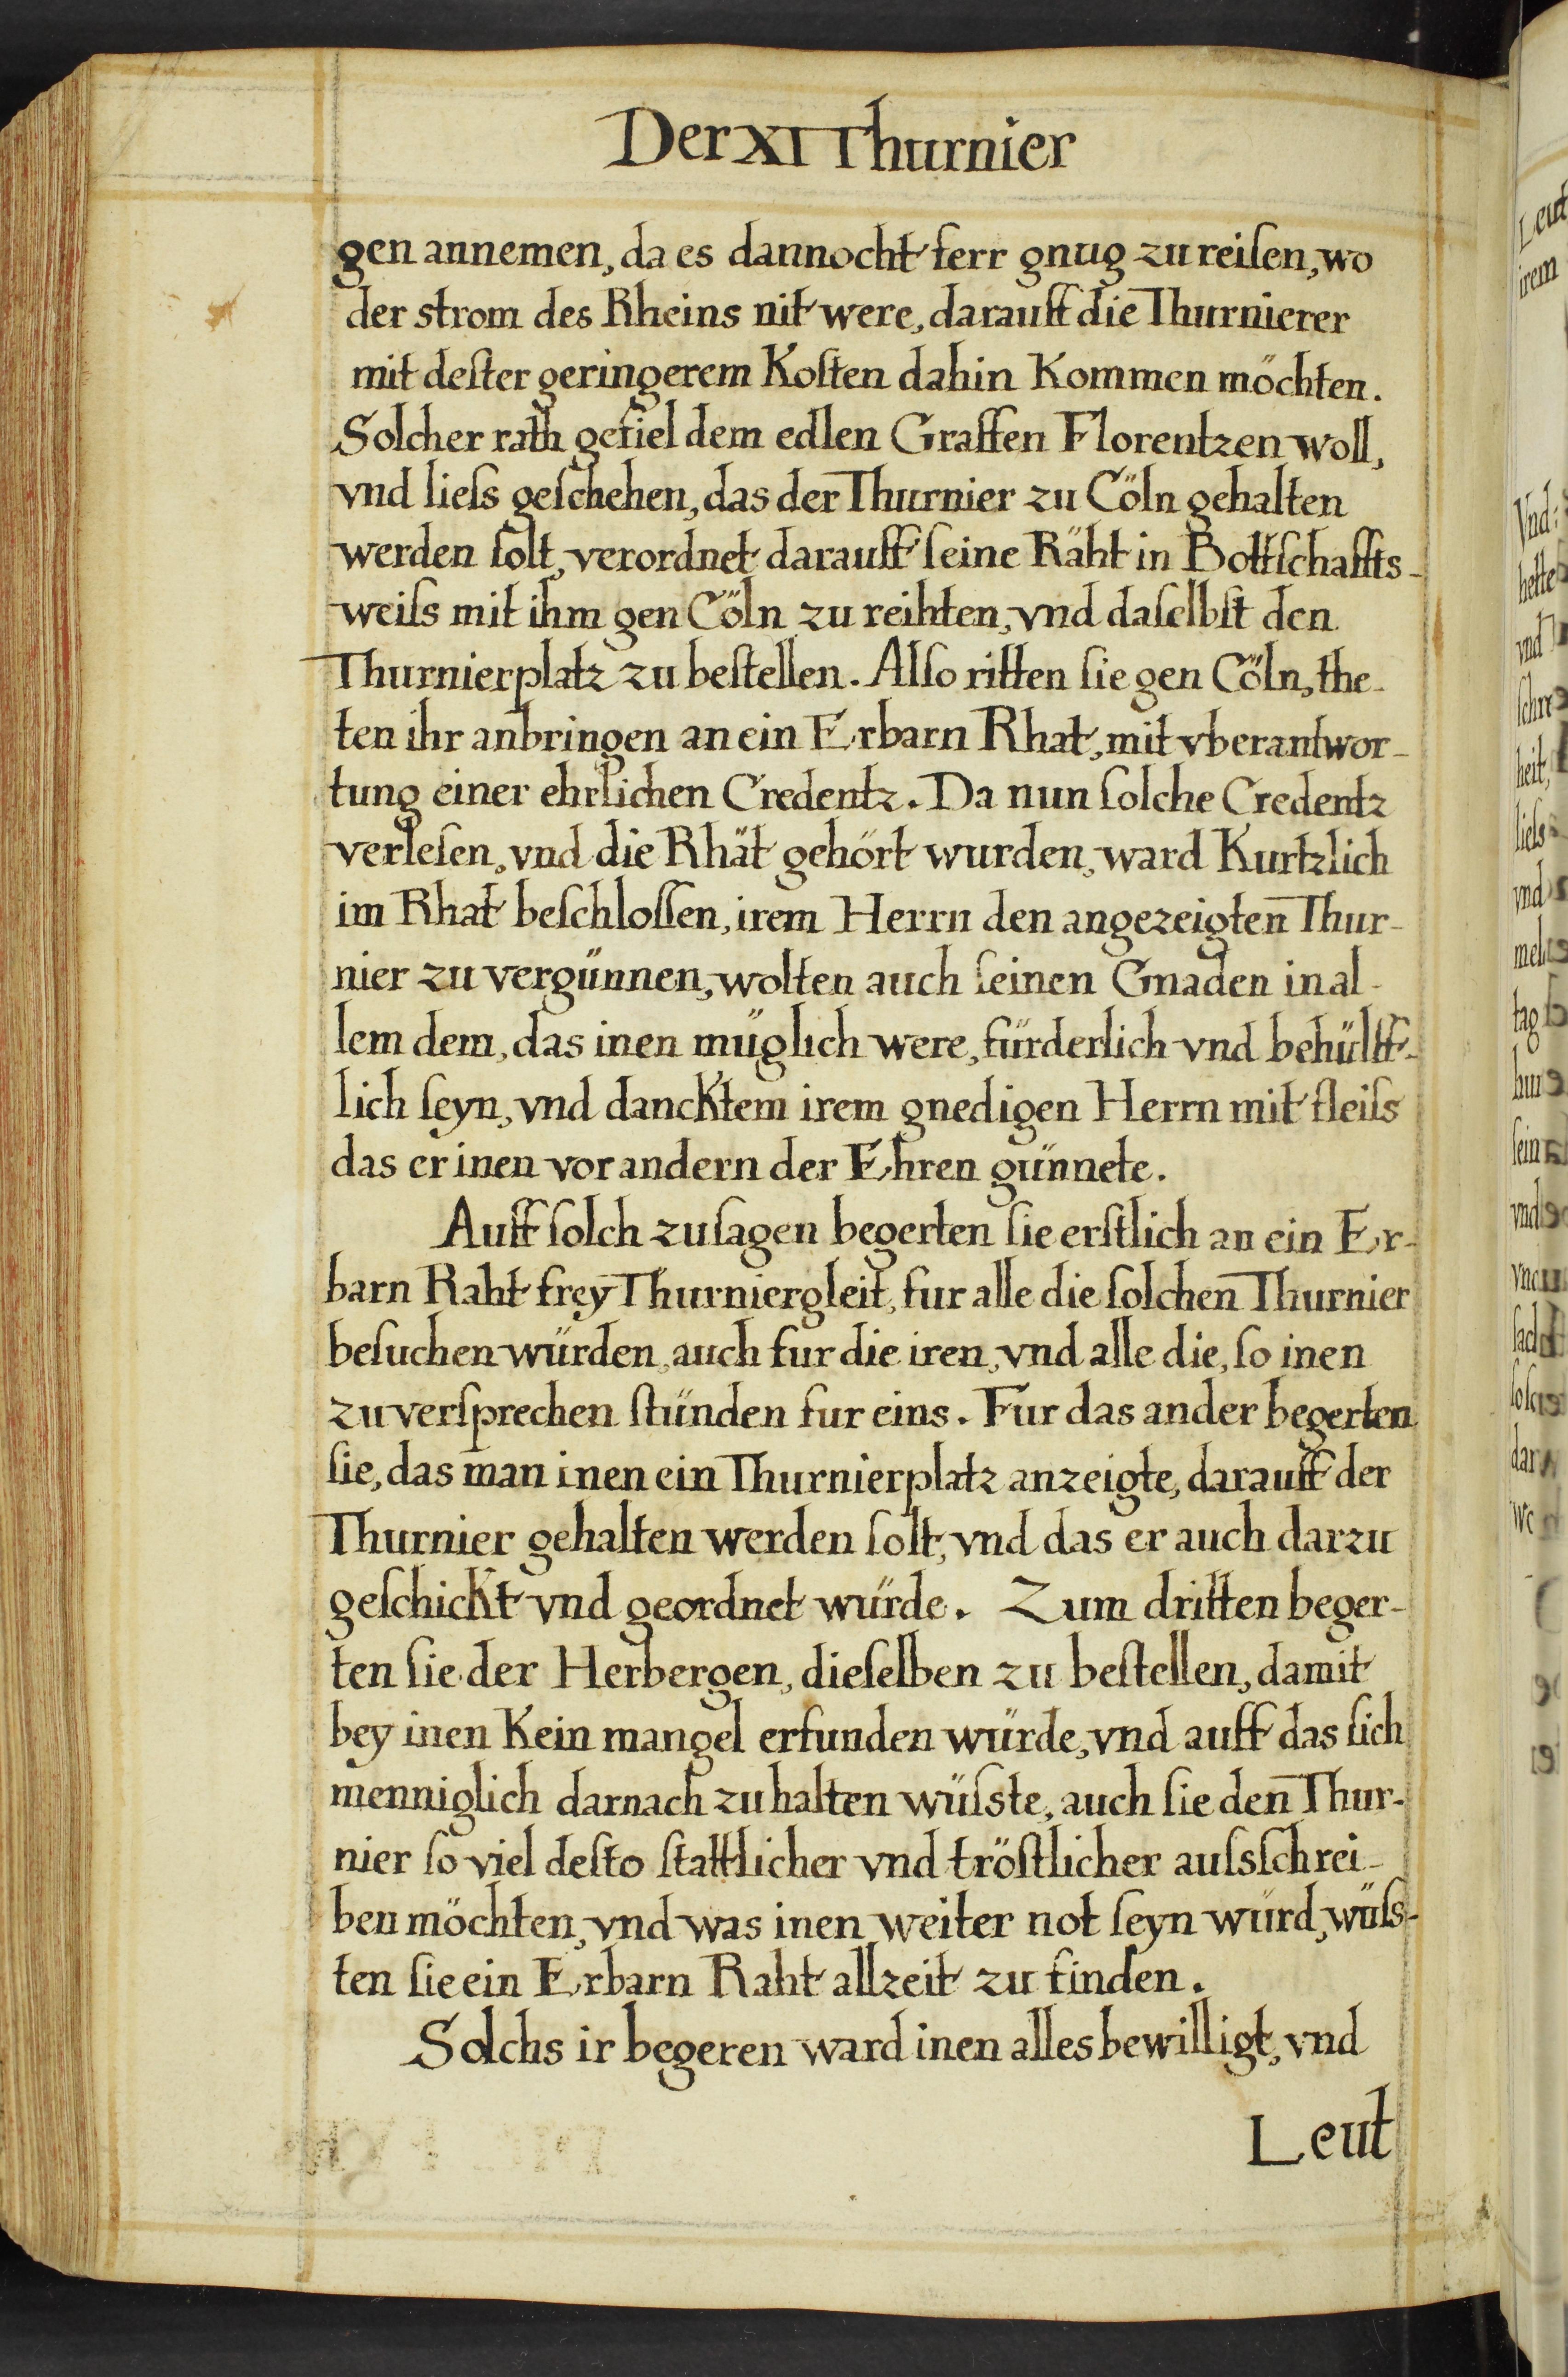 Der XI Thurnier
gen annemen, da es dannocht ferr gnug zu reiſen, wo
der strom des Rheins nit were, darauff die Thurnierer
mit deſter geringerem Koſten dahin Kommen möchten.
Solcher rath gefiel dem edlen Graffen Florentzen woll,
vnd lieſs geſchehen, das der Thurnier zu Cöln gehalten
werden ſolt, verordnet darauff ſeine Räht in Bottſchaffts-
weiſs mit ihm gen Cöln zu reihten, vnd daſelbſt den
Thurnierplatz zu beſtellen. Alſo ritten ſie gen Cöln, the-
ten ihr anbringen an ein Erbarn Rhat, mit vberantwor-
tung einer ehrlichen Credentz. Da nun ſolche Credentz
verleſen, vnd die Rhät gehört wurden, ward Kurtzlich
im Rhat beſchloſſen, irem Herrn den angezeigten Thur-
nier zu vergünnen, wolten auch ſeinen Gnaden in al-
lem dem, das inen müglich were, fürderlich vnd behülff-
lich ſeyn, vnd dancktem irem gnedigen Herrn mit fleiſs
das er inen vor andern der Ehren günnete.
Auff ſolch zuſagen begerten ſie erſtlich an ein Er-
barn Raht frey Thurniergleit, fur alle die ſolchen Thurnier
beſuchen würden, auch fur die iren, vnd alle die, ſo inen
zu verſprechen ſtünden fur eins. Fur das ander begerten
ſie, das man inen ein Thurnierplatz anzeigte, darauff der
Thurnier gehalten werden ſolt, vnd das er auch darzu
geſchickt vnd geordnet würde. Zum dritten beger-
ten ſie der Herbergen, dieſelben zu beſtellen, damit
bey inen Kein mangel erfunden würde, vnd auff das ſich
menniglich darnach zu halten wüſste, auch ſie den Thur-
nier ſo viel deſto ſtattlicher vnd tröſtlicher auſsſchrei-
ben möchten, vnd was inen weiter not ſeyn würd, wüſs-
ten ſie ein Erbarn Raht allzeit zu finden.
Solchs ir begeren ward inen alles bewilligt, vnd
Leut